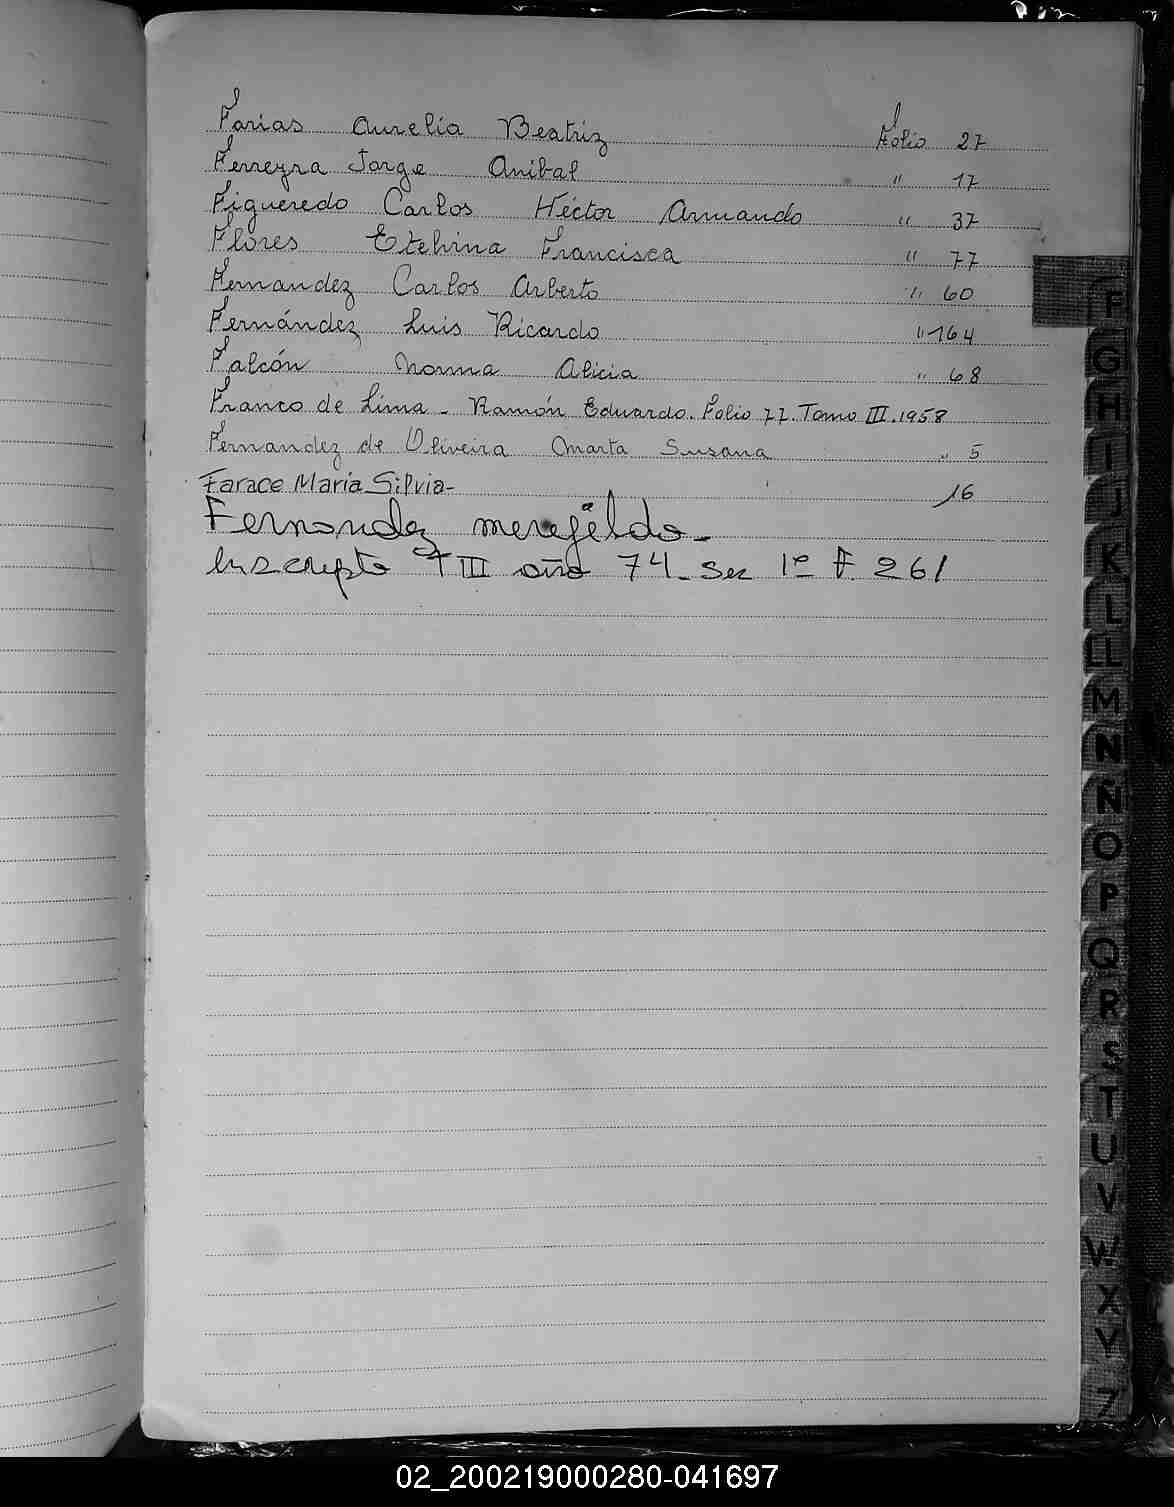 Farias Aurelia Beatriz Folio 27
Ferreyra Jorge Anibal " 17
Figueredo Carlos Héctor Armando " 37
Flores Etelvina Francisca " 77
Fernandez Carlos Arberto " 60
Fernández Luis Ricardo " 164
Falcón Norma Alicia " 68
Franco de Lima - Ramón Eduardo. Folio 77. Tomo III. 1958
Fernandez de Oliveira Marta Susana " 5
Farace Maria Silvia- 16
Fernandez merejildo-
Inscripto T III año 74 - Sec 1º F. 261
F
G
H
I
J
K
L
LL
M
N
Ñ
O
P
Q
R
S
T
U
V
W
X
Y
Z
02_200219000280-041697